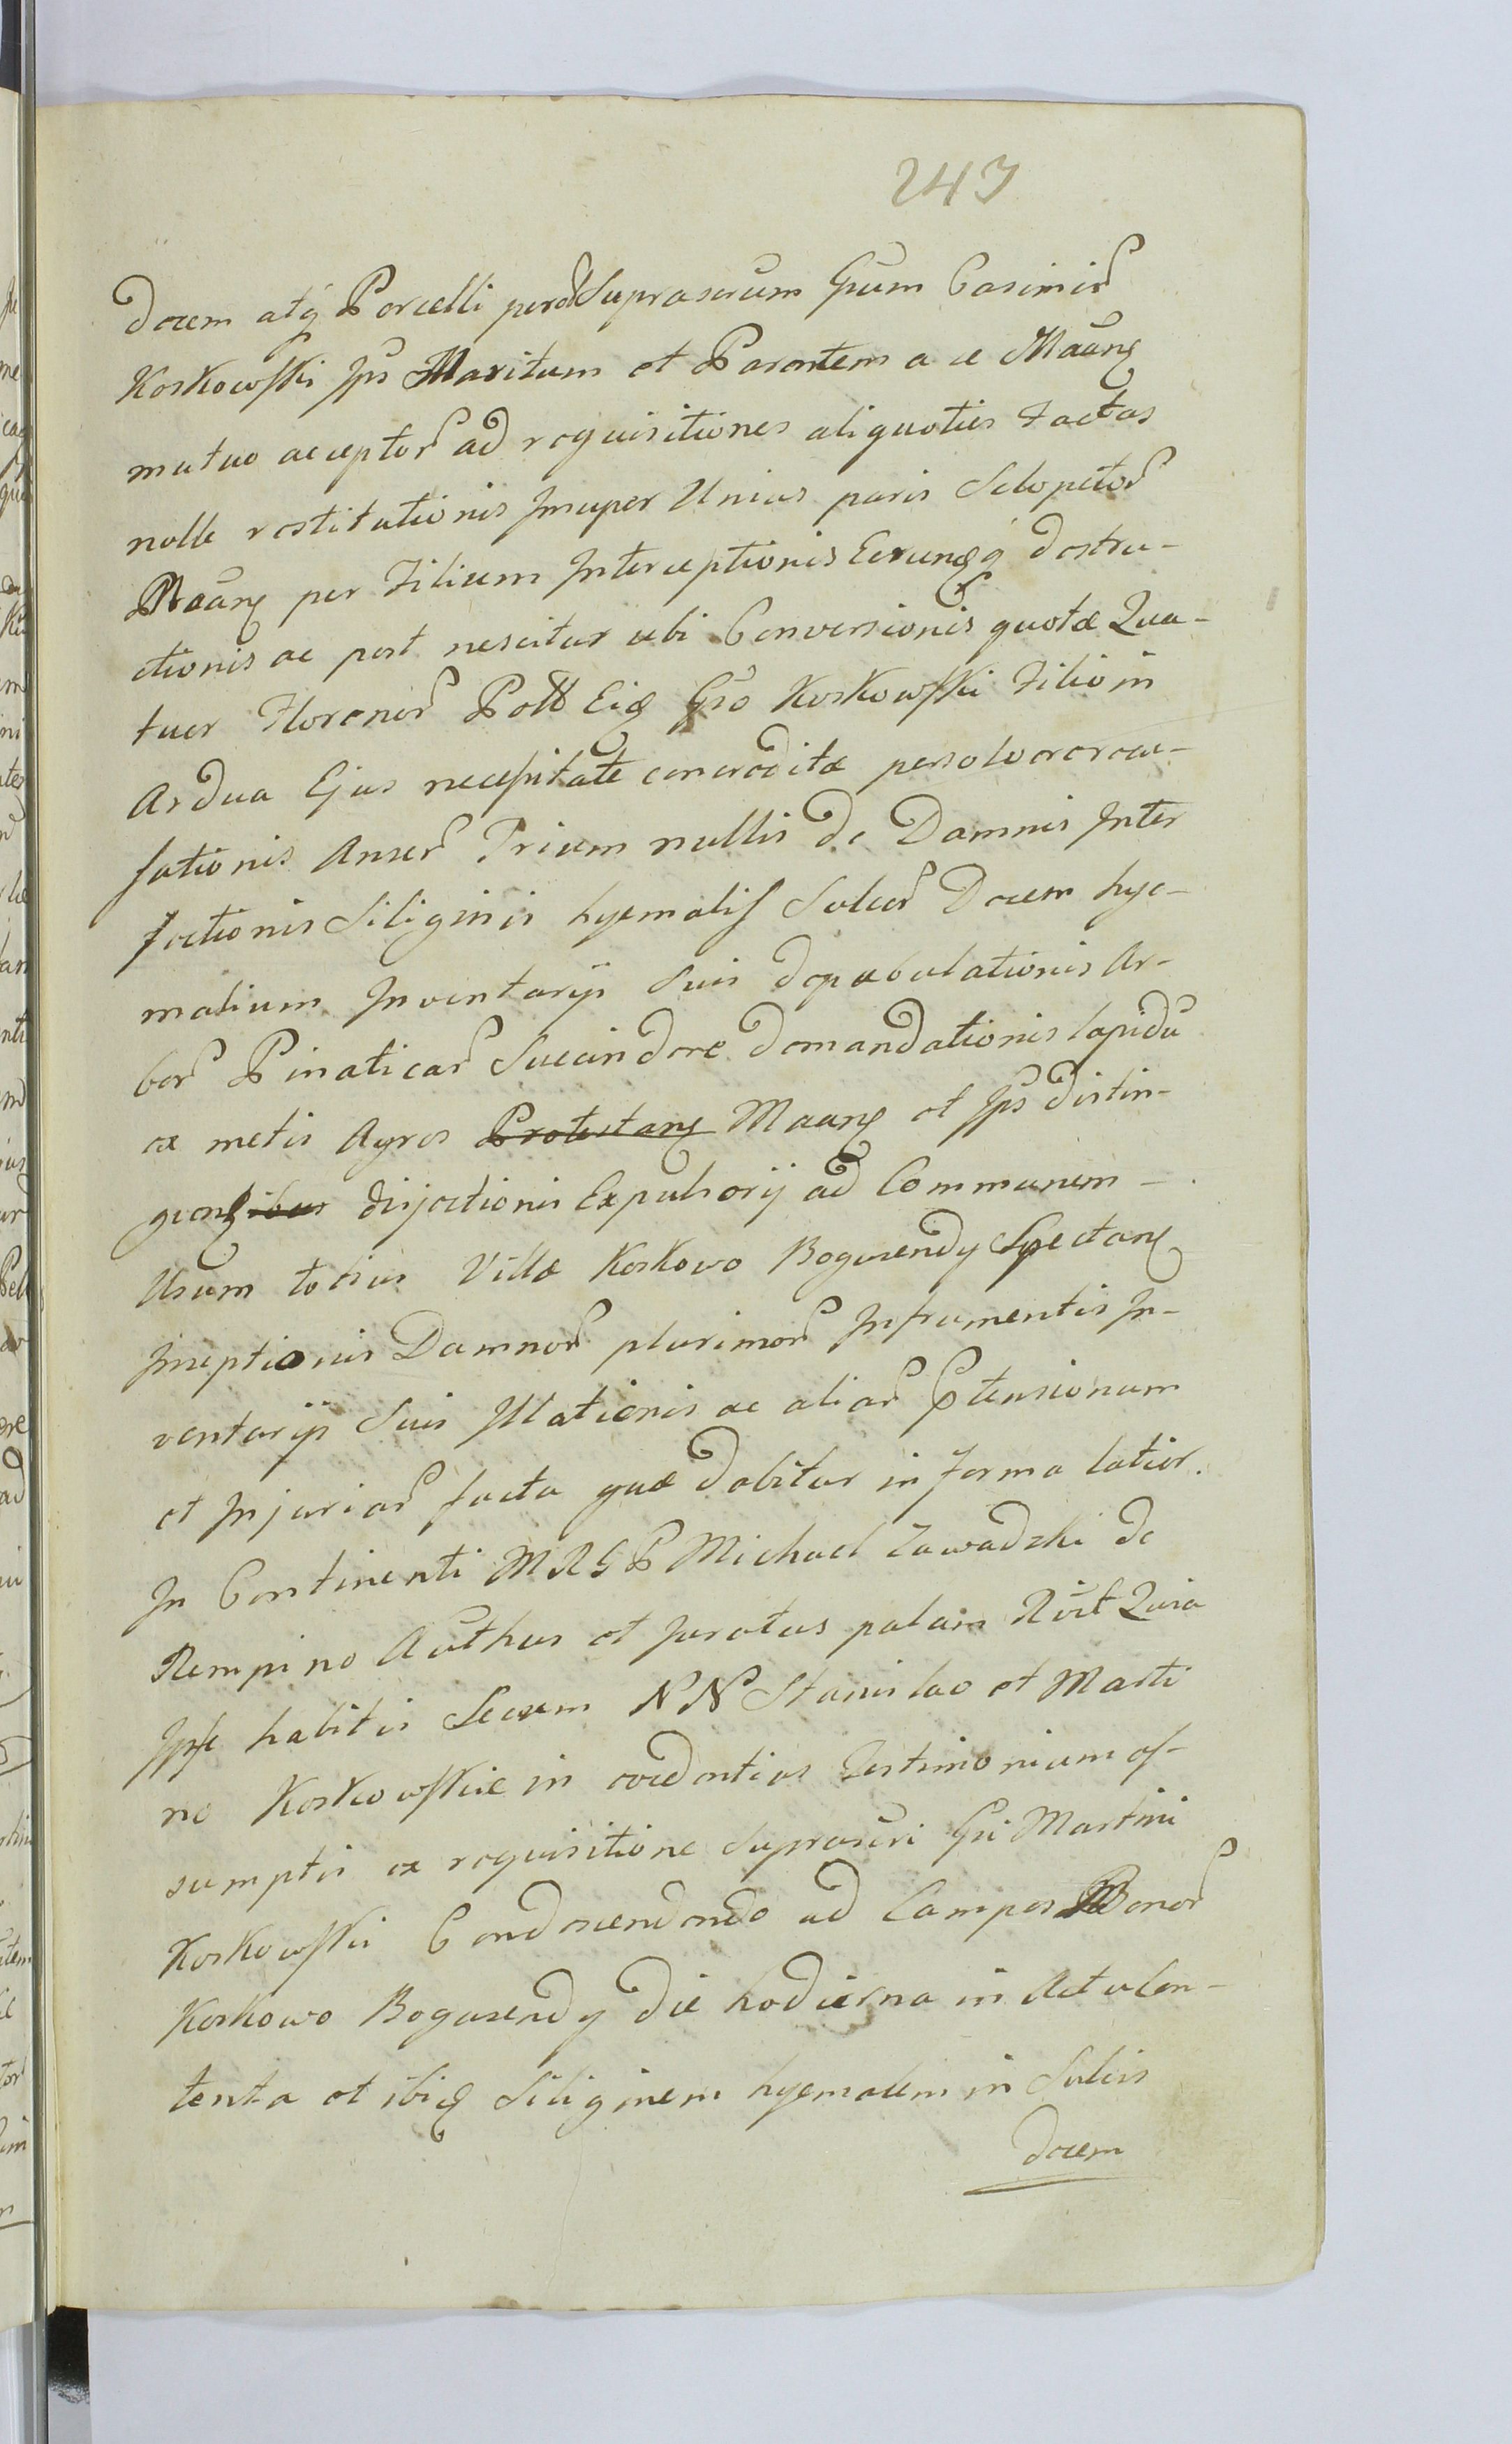 243
Decem atq Porcelli per Suprascrum Gsum Casimir
Koskowski Ips Maritum et Parentem a ce Maanq
mutuo acceptor ad requisitiones aliquoties Factas
nolle restitutionis Insuper Unius paris Sclopetor
Maanq per Filium Interceptionis Eorundq destru-
ctionis ac post nescitur ubi Conversionis quotæ Qua-
tuor Florenor Poll Eid Gso Koskowski Filio in
Ardua Ejus necessitate concreditæ persolvere recu-
sationis Anser Trium nullis de Damnis Inter
fectionis Siliginis hyemalis Sulcor Decem hye-
malium Inventarys Suis depabulationis Ar-
bor Pinaticar Succindere demandationis lapidu
ex metis Agros Protestanq Maanq et Ips distin-
guenqibus disjectionis Expulsorij ad Communem -
Usum totius Villæ Koskowo Bogusendy Spectanq
Ineptionis Damnor plurimor In frumentis In-
ventarijs Suis Illationis ac aliar Ptensionum
et Injuriar facta quæ dabitur in forma latior.
In Continenti MRGP Michael Zawadzki de
Rempino Authus et Juratus palam Rcit Quia
Ipse habitis Secum NN Stanislao et Marti
no Koskowskie in evidentius Testimonium as-
sumptis ex requisitione Suprascri Gsi Martini
Koskowski Condescendendo ad Campos Bonor
Koskowo Bogusendy die hodierna in Actu con-
tenta et ibiq Siliginem hyemalem in Sulcis
Decem